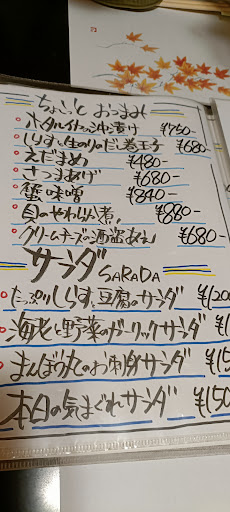 ちょいと おつまみ
・ホタルイカの沖漬け ¥750-
・しらすと生のりのだし巻玉子 ¥680-
・えだまめ ¥480-
・さつまあげ ¥680-
・蟹味噌 ¥840-
・貝のやわらか煮。 ¥880-
・クリームチーズの酒盗あえ ¥680-
サラダ SARADA
・たっぷりしらすと豆腐のサラダ ¥1200
・海老と野菜のガーリックサラダ ¥1
・まんぼう丸のお刺身サラダ ¥15
・本日の気まぐれサラダ ¥150